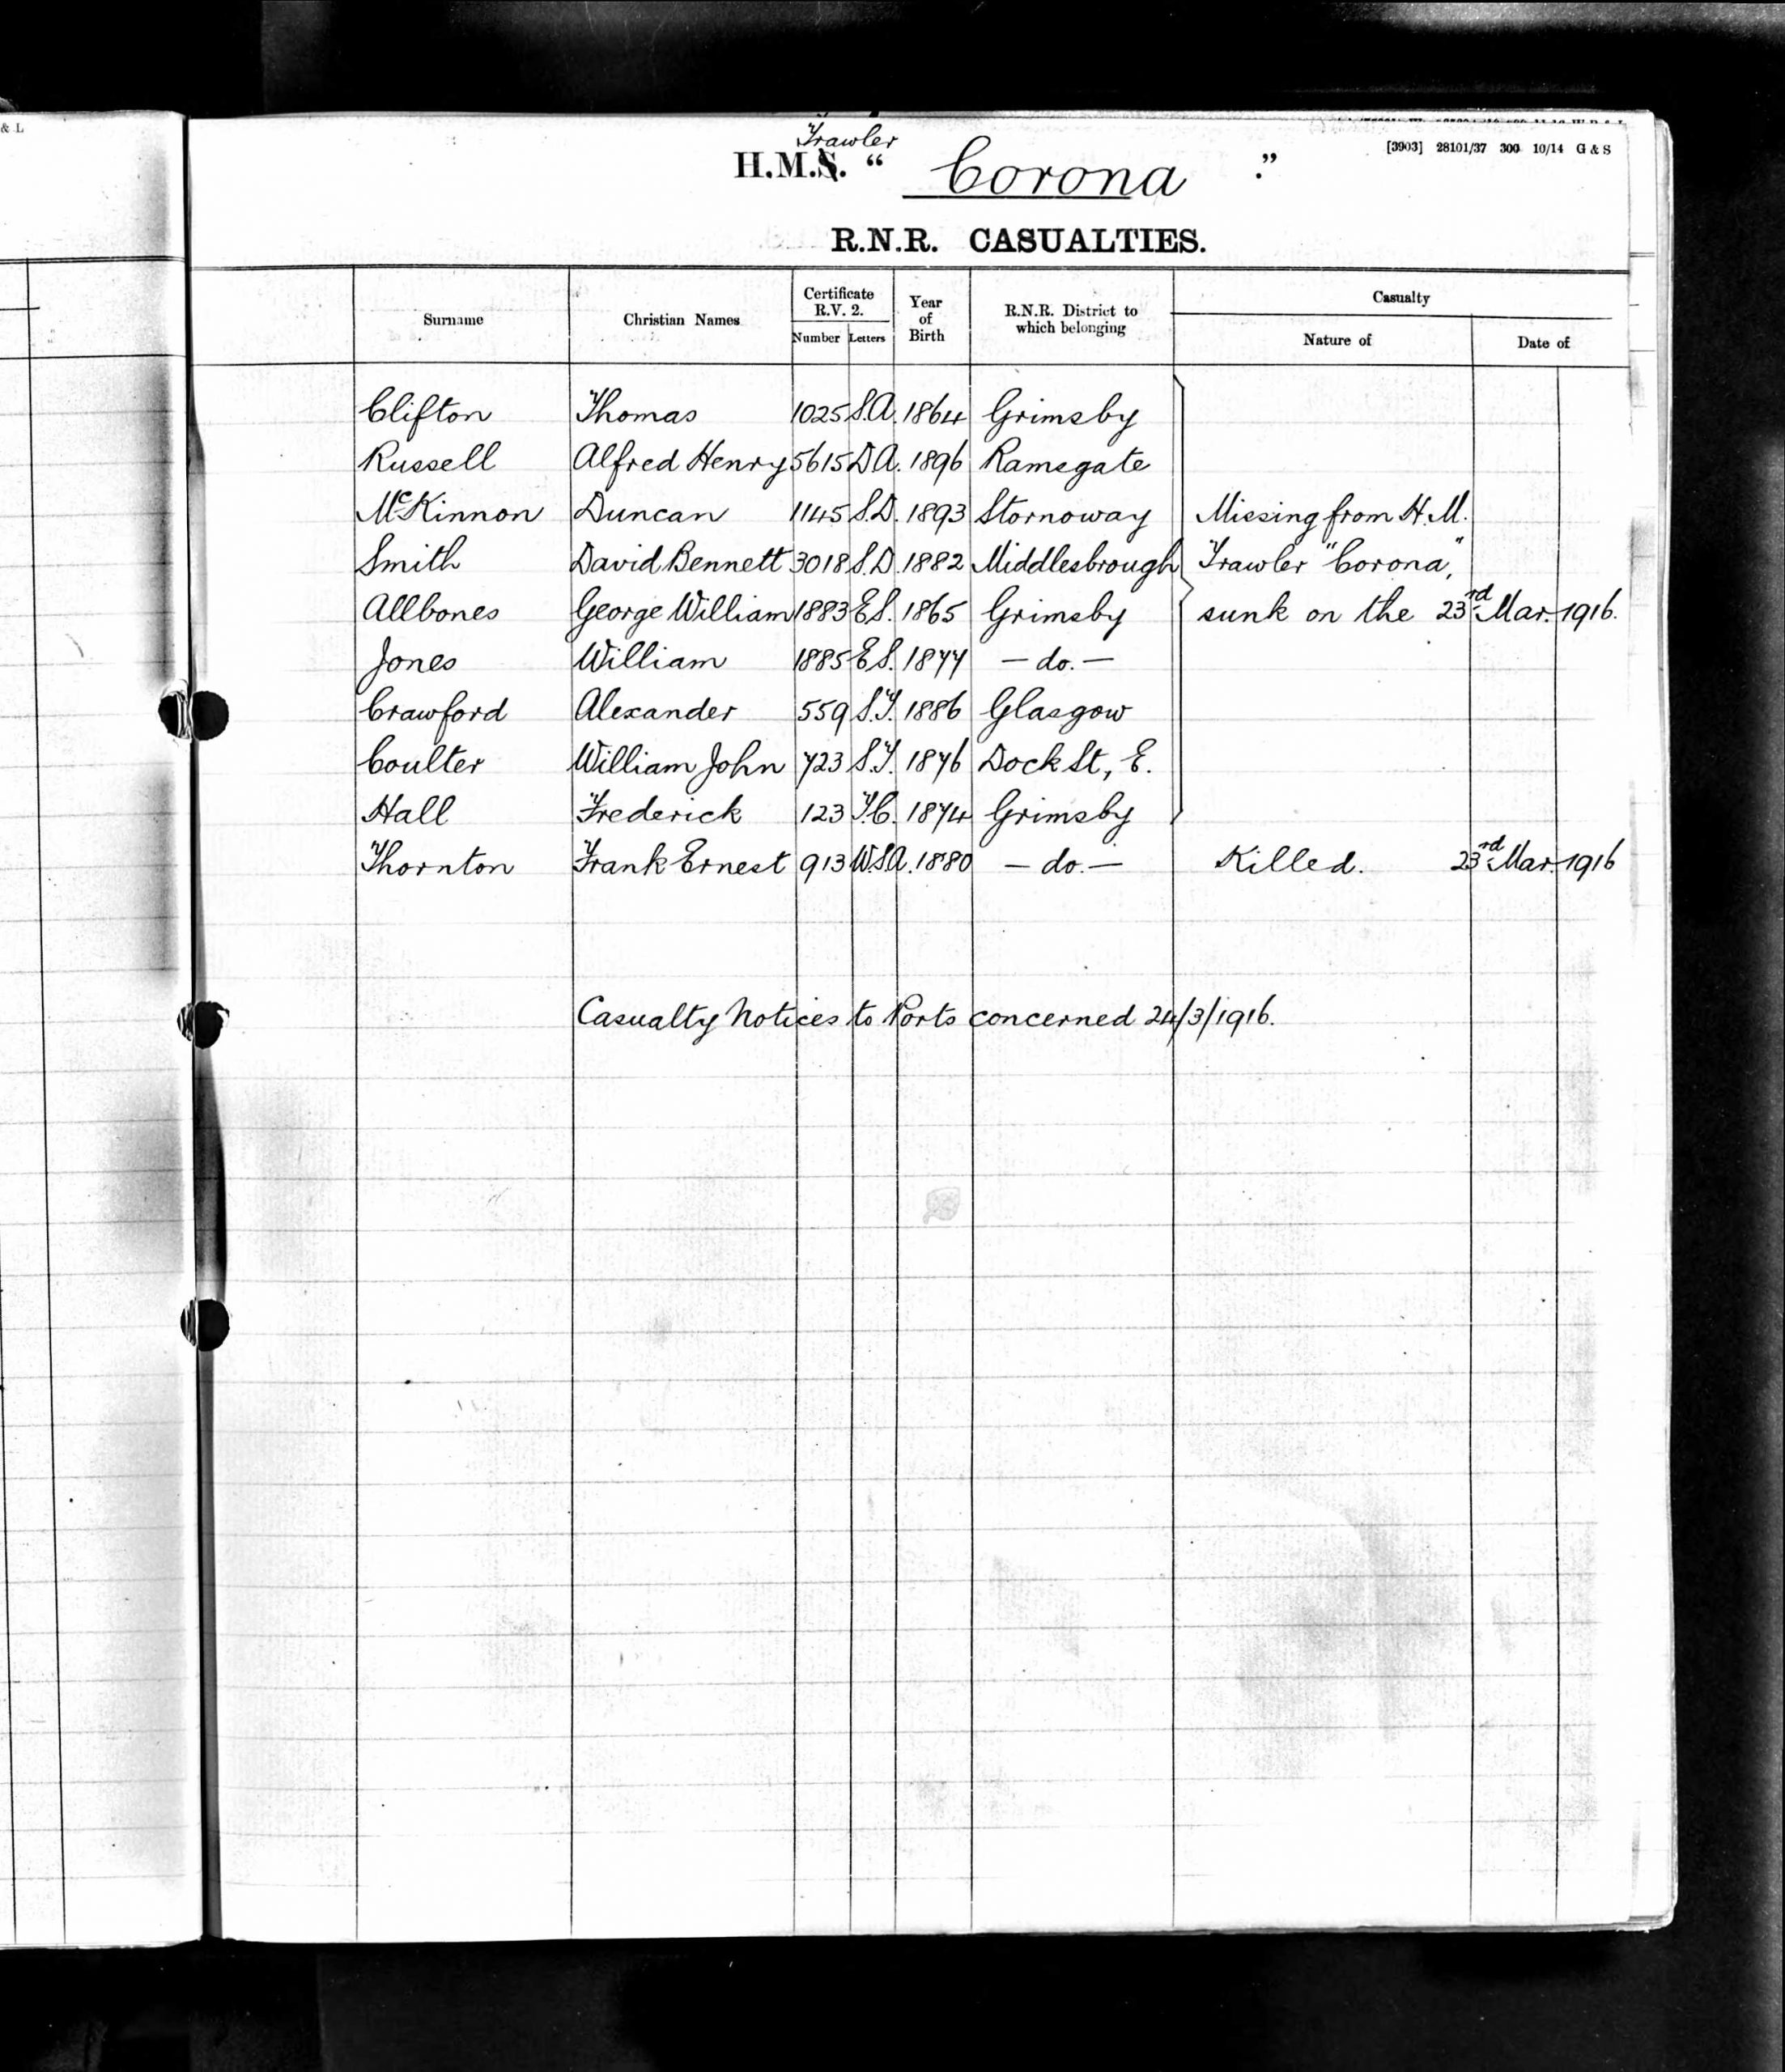 & L
Trawler
H.M.S. “ Corona ”.
[3903] 28101/37 300 10/14 G & S
R.N.R. CASUALTIES.
Surname Christian Names Certificate R.V. 2. Number Letters Year of Birth R.N.R. District to which belonging Casualty Nature of Date of
Clifton Thomas 1025 S.A. 1864 Grimsby
Russell Alfred Henry 5615 D.A. 1896 Ramsgate
McKinnon Duncan 1145 S.D. 1893 Stornoway Missing from H.M.
Smith David Bennett 3018 S.D. 1882 Middlesbrough Trawler "Corona,"
Allbones George William 1883 E.S. 1865 Grimsby sunk on the 23rd Mar. 1916.
Jones William 1885 E.S. 1877 — do. —
Crawford Alexander 559 S.T. 1886 Glasgow
Coulter William John 723 S.T. 1876 Dock St, E.
Hall Frederick 123 T.C. 1874 Grimsby
Thornton Frank Ernest 913 W.S.A. 1880 — do. — Killed. 23rd Mar. 1916
Casualty Notices to Ports concerned 24/3/1916.